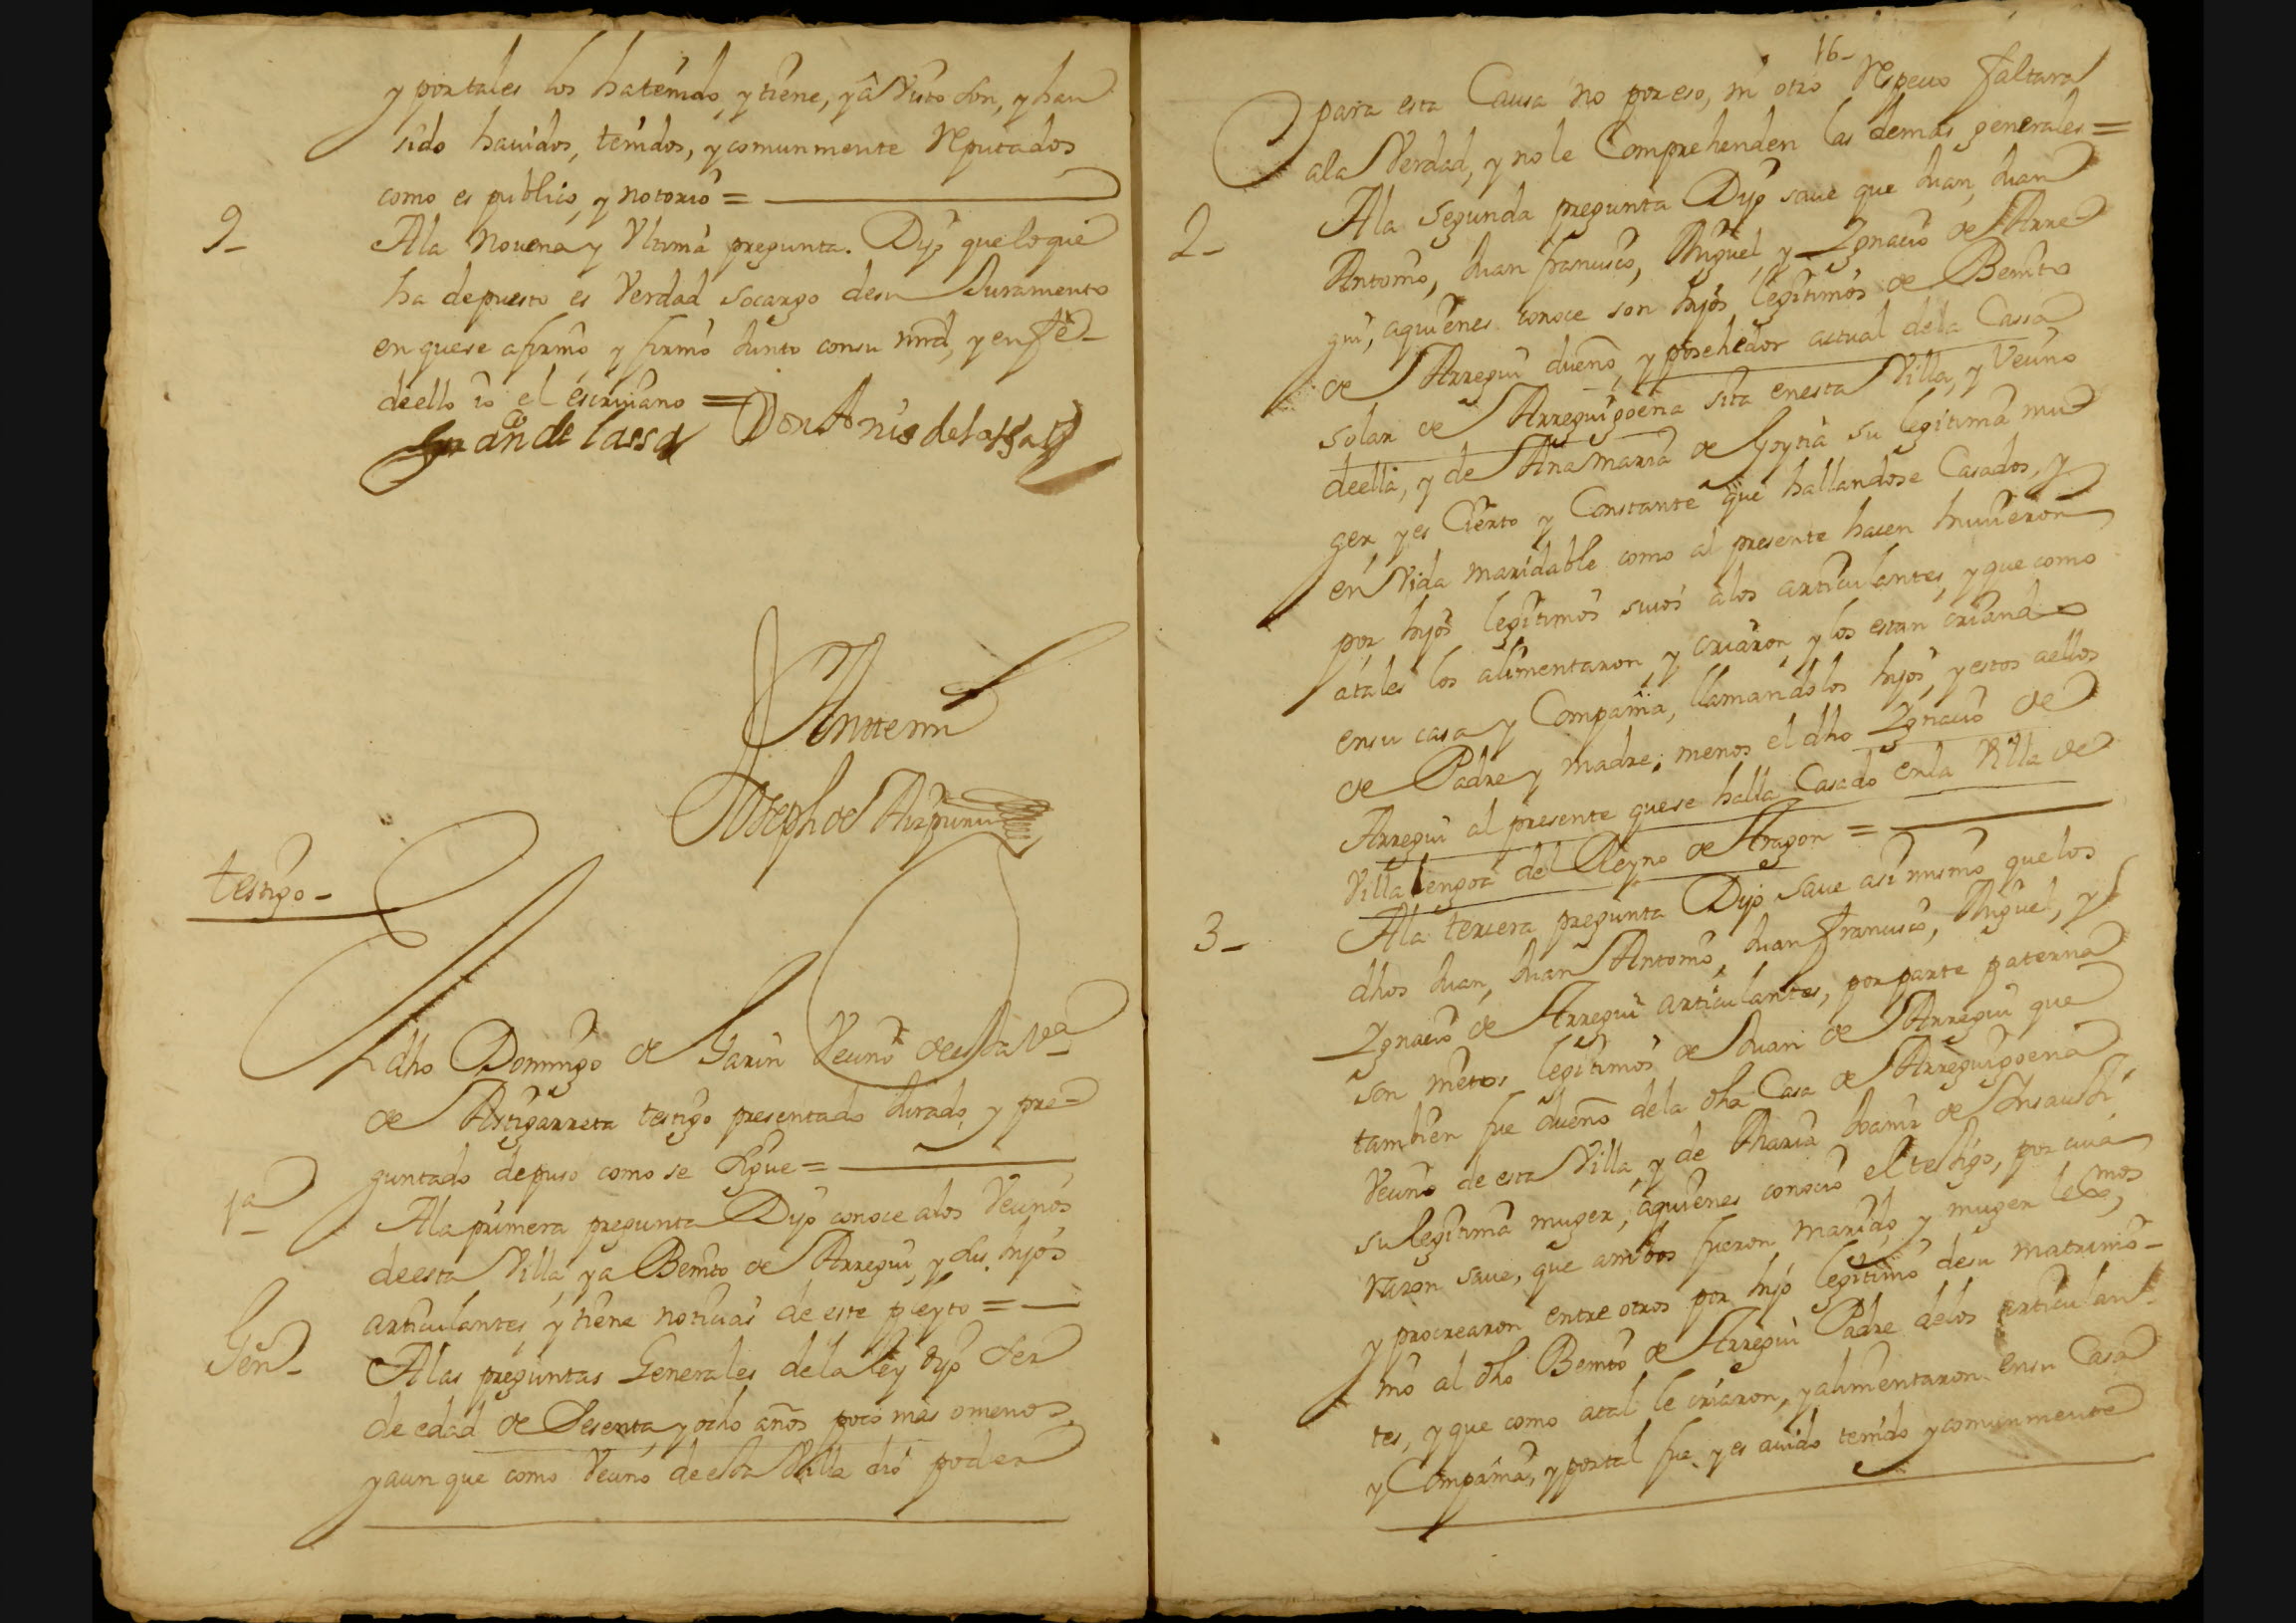 y por tales los ha tenido, y tiene, y â visto son, y han
sido hauidos, tenidos, y comunmente Reputados
como es publico, y notorio =
9_
Ala Nouena y Vltima pregunta. Dijo que loque
ha depuesto es Verdad socargo desu Juramento
en quese afirmo, y firmó Junto consu mrd, y en feê_
deello io el escriuano =
Juan de lassa Don Antnio de lassalde
Antte mi
Joseph de Aizpuru
testigo_
El dho Domingo de Garin Vecino de esta Va
de Astigarreta testigo presentado Jurado, y pre=
guntado depuso como se sigue =
1a
Ala primera pregunta Dijo conoce alos Vecinos
deesta Villa, y a Benito de Arregui, y sus hijos
articulantes, y tiene noticias de este pleyto =
Gen_
Alas preguntas Generales dela ley dijo ser
de edad de Sesenta, y ocho años poco más omenos,
y aun que como Vecino deesta Villa dió poder
16_
para esta Causa no por eso, ni otro Respecto faltara
ala Verdad, y no le Comprehenden las demás generales =
2_
Ala segunda pregunta Dijo saue que Juan, Juan
Antonio, Juan francisco, Miguel, y Ignacio de Arre
gui, aquienes conoce son hijos legitimos de Benito
de Arregui dueño, y posehedor actual dela Cassa
solar de Arreguigoena sita enesta Villa, y Vecino
deella, y de Ana maria de Goytia su legitima mu
ger y es Cierto y Constante que hallandose Casados, y
en Vida maridable como al presente hacen huuieron
por hijos legitimos suios alos articulantes, y que como
atales los alimentaron, y criaron, y los estan criando
ensu casa y Compañia, llamandolos hijos, y estos aellos
de Padre y madre; menos el dho Ignacio de
Arregui al presente quese halla Casado enla Villa de
Villa lengoa del Reyno de Aragon =
3_
Ala tercera pregunta Dijo saue asi mismo quelos
dhos Juan, Juan Antonio, Juan francisco, Miguel, y
Ignacio de Arregui articulantes, por parte paterna
son nietos legitimos de Juan de Arregui que
tambien fue dueño dela dha Casa de Arreguigoena
Vecino de esta Villa, y de Maria Joaniz de Insausti
su legitima muger, aquienes conocio el testigo, por cuia
razon saue, que ambos fueron marido, y muger lexmos,
y procrearon entre otros por hijo legitimo desu matrimo_
nio al dho Benito de Arregui Padre delos articulan_
tes, y que como atal le criaron, y alimentaron ensu Casa
y Compañia, y portal fue, y es auido tenido y comunmente